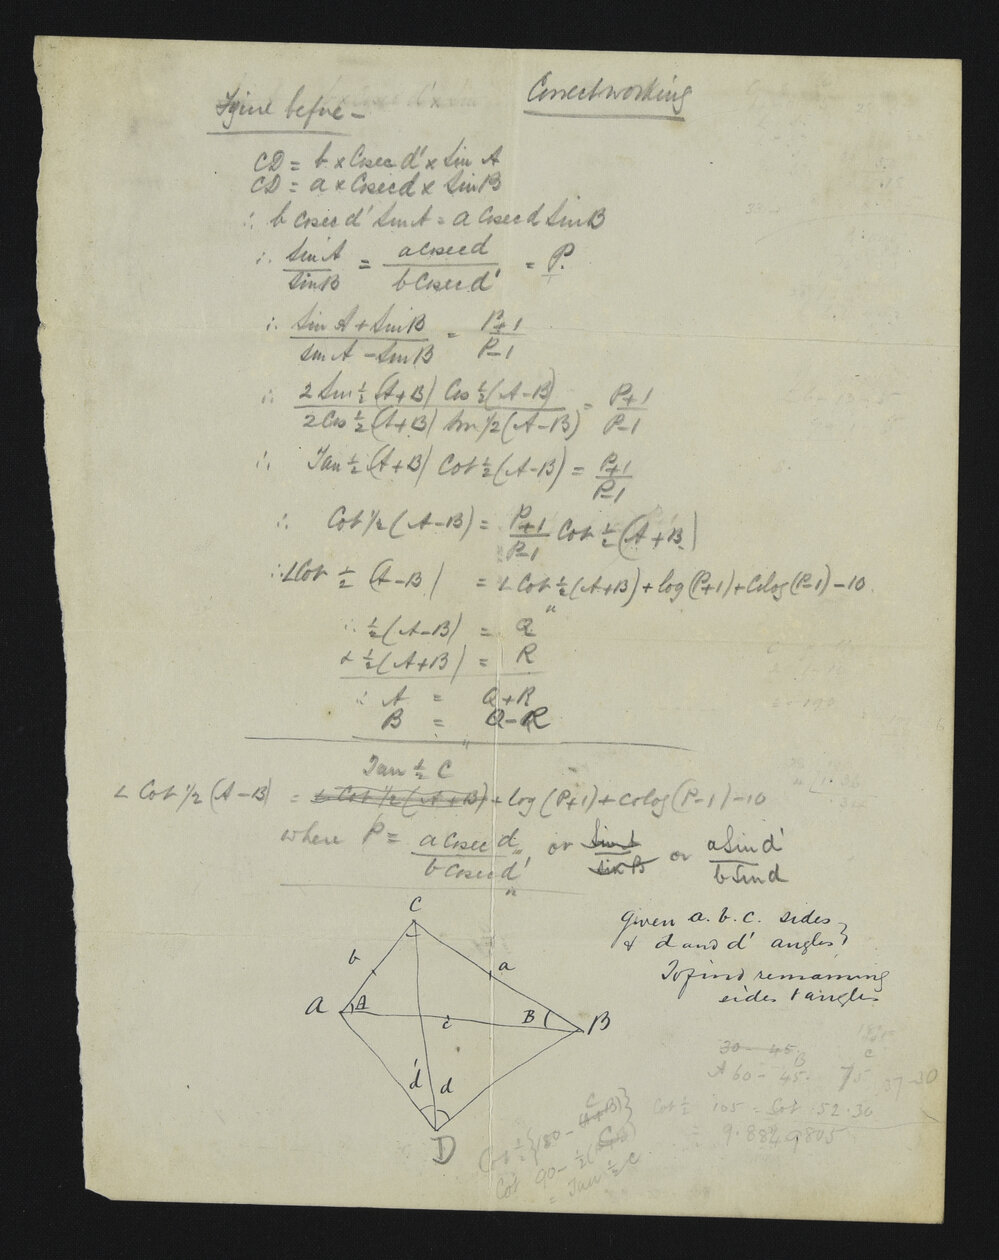 Correct working
Figure before –
CD = b x Cosec d' x Sin A
CD = a x Cosec d x Sin B
∴ b cosec d' Sin A = a Cosec d Sin B
∴ Sin A / Sin B = a Cosec d / b Cosec d' = P.
∴ Sin A + Sin B / Sin A – Sin B = P+1 / P–1
∴ 2 Sin ½ (A+B) Cos ½ (A–B) / 2 Cos ½ (A+B) Sin 1/2 (A–B) = P+1 / P–1
∴ Tan ½ (A+B) Cot ½ (A–B) = P+1 / P–1
∴ Cot 1/2 (A–B) = P+1 / P–1 Cot ½ (A+B)
∴ L Cot ½ (A–B) = L Cot ½ (A+B) + log (P+1) + Colog (P–1) – 10.
∴ ½ (A–B) = Q
+ ½ (A+B) = R
∴ A = Q+R
B = Q–R
Tan ½ C
L Cot 1/2 (A–B) = L Cot 1/2 (A+B) + log (P+1) + colog (P–1) – 10
where P = a Cosec d / b Cosec d' or Sin A / Sin B or a Sin d' / b Sin d
C
given a. b. c. sides
& d and d' angles
To find remaining
sides & angles
b a
A A c B B
d' d
D
30 – 45
B C
A 60 – 45. 75 37–30
Cot ½ 105 = Cot 52.30
= 9.8849805
Cot ½ {180 – (A+B)} C
Cot 90 – ½ (A+B) C
= Tan ½ C